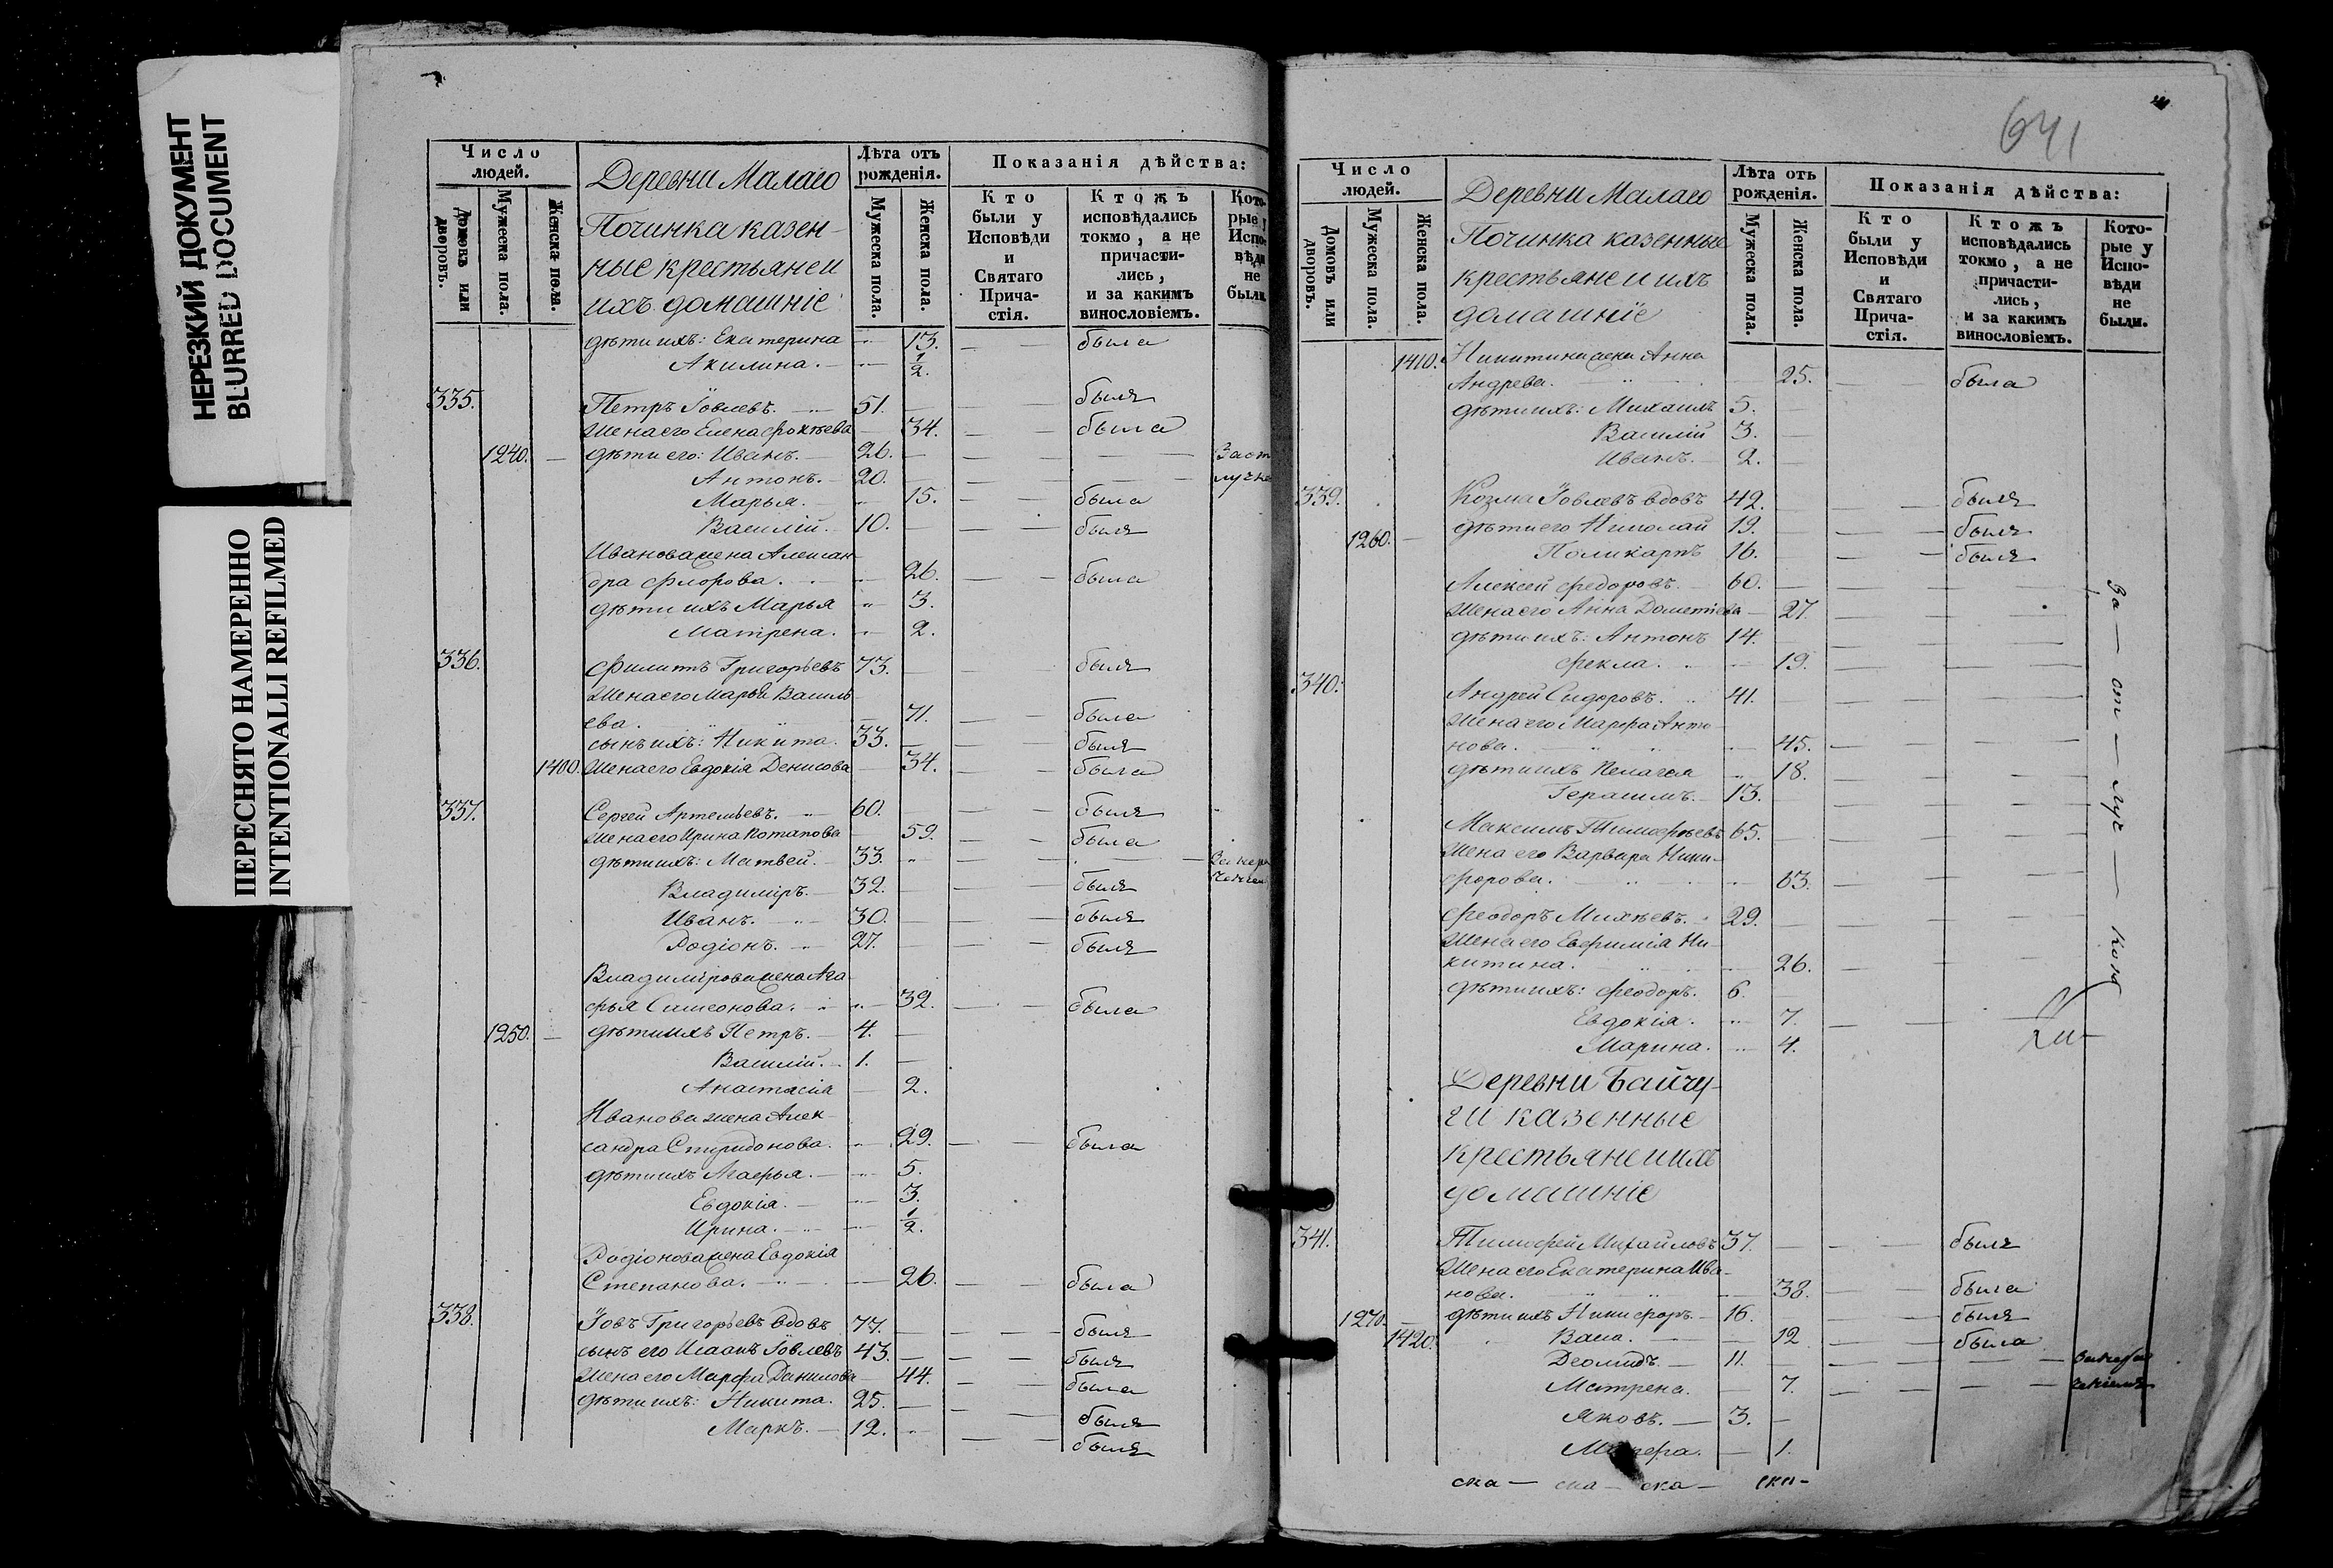 НЕРЕЗКИЙ ДОКУМЕНТ
BLURRED DOCUMENT
ПЕРЕСНЯТО НАМЕРЕННО
INTENTIONALLI REFILMED
Число людей.
Домовъ или дворовъ.
Мужеска пола.
Женска пола.
Деревни Малаго
Починка казен-
ные крестьяне и
ихъ домашніе
Лѣта отъ рожденія.
Мужеска пола.
Женска пола.
Показанія дѣйства:
Кто были у Исповѣди и Святаго Причастія.
Ктожъ исповѣдались токмо, а не причастились, и за какимъ винословіемъ.
Кото- рые у Испо- вѣди не были
дѣти ихъ: Екатерина 13. была
Акилина. 1/2.
335. Петръ Іовлевъ. 51. былъ
Жена его Елена Фокѣева 34. была
1240. дѣти его: Иванъ. 26. Заот
Антонъ. 20. лучк
Марья. 15. была
Василій. 10. былъ
Иванова жена Алексан-
дра Флорова. 26. была
дѣти ихъ Марья 3.
Матрена. 2.
336. Филипъ Григорьевъ 73. былъ
Жена его Марья Василь-
ева. 71. была
сынъ ихъ: Никита. 33. былъ
1400. Жена его Евдокія Денисова 34. была
337. Сергей Артемьевъ. 60. былъ
Жена его Ирина Потапова 59. была
дѣти ихъ: Матвей. 33.
Владиміръ. 32. былъ
Иванъ. 30. былъ
Родіонъ. 27. былъ
Владимірова жена Ага-
фья Симеонова. 32. была
1250. дѣти ихъ Петръ. 4.
Василій. 1.
Анастасія 2.
Иванова жена Алек-
сандра Спиридонова. 29. была
дѣти ихъ Агафья. 5.
Евдокія. 3.
Ирина. 1/2.
Родіонова жена Евдокія
Степанова. 26. была
338. Іовъ Григорьевъ вдовъ 77. былъ
сынъ его Исаакъ Іовлевъ 43. былъ
Жена его Марфа Данилова 44. была
дѣти ихъ: Никита. 25. былъ
Маркъ. 12. былъ
641
Число людей.
Домовъ или дворовъ.
Мужеска пола.
Женска пола.
Деревни Малаго
Починка казенные
крестьяне и ихъ
домашніе
Лѣта отъ рожденія.
Мужеска пола.
Женска пола.
Показанія дѣйства:
Кто были у Исповѣди и Святаго Прича- стія.
Ктожъ исповѣдались токмо, а не причасти- лись, и за какимъ винословіемъ.
Кото- рые у Испо- вѣди не были.
1410. Никитина жена Анна
Андрева. 25. была
дѣти ихъ: Михаилъ 5.
Василій 3.
Иванъ. 2.
339. Козма Іовлевъ вдовъ 42. былъ
дѣти его Николай 19. былъ
1260. Поликарпъ 16. былъ
Алексей Федоровъ. 60.
Жена его Анна Дометіева 27.
дѣти ихъ: Антонъ 14.
Фекла. 19.
340. Андрей Сидоровъ. 41.
Жена его Марфа Анто-
нова. 45.
дѣти ихъ Пелагея 18.
Герасимъ. 13.
Максимъ Тимофѣевъ 65.
Жена его Варвара Ники-
форова. 63.
Феодоръ Михѣевъ. 29.
Жена его Евфимія Ни-
китина. 26.
дѣти ихъ: Феодоръ. 6.
Евдокія. 7.
Марина. 4.
За — от — луч — кою
Деревни Байчу-
ги казенные
крестьяне и ихъ
домашніе
341. Тимофей Михайловъ 37. былъ
Жена его Екатерина Ива-
нова. 38. была
1270. дѣти ихъ Никифоръ. 16. былъ
1420. Васа. 12 была
Деомидъ. 11.
Матрена. 7.
Яковъ. 3.
1.
ска — ска — ска — ска —